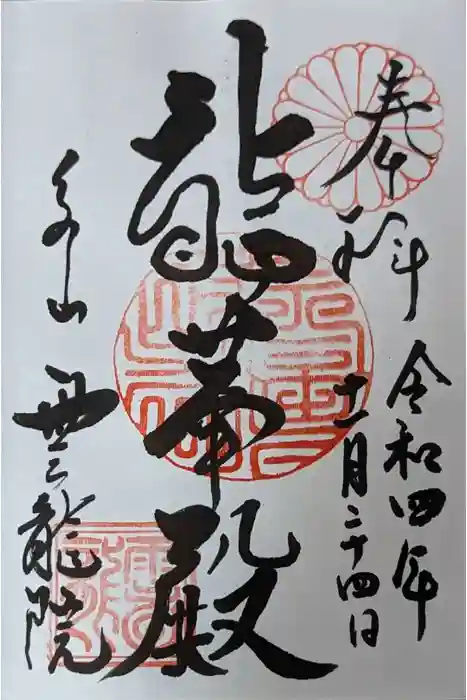 奉拝
令和四年
十一月二十四日
龍華殿
泉山
雲龍院